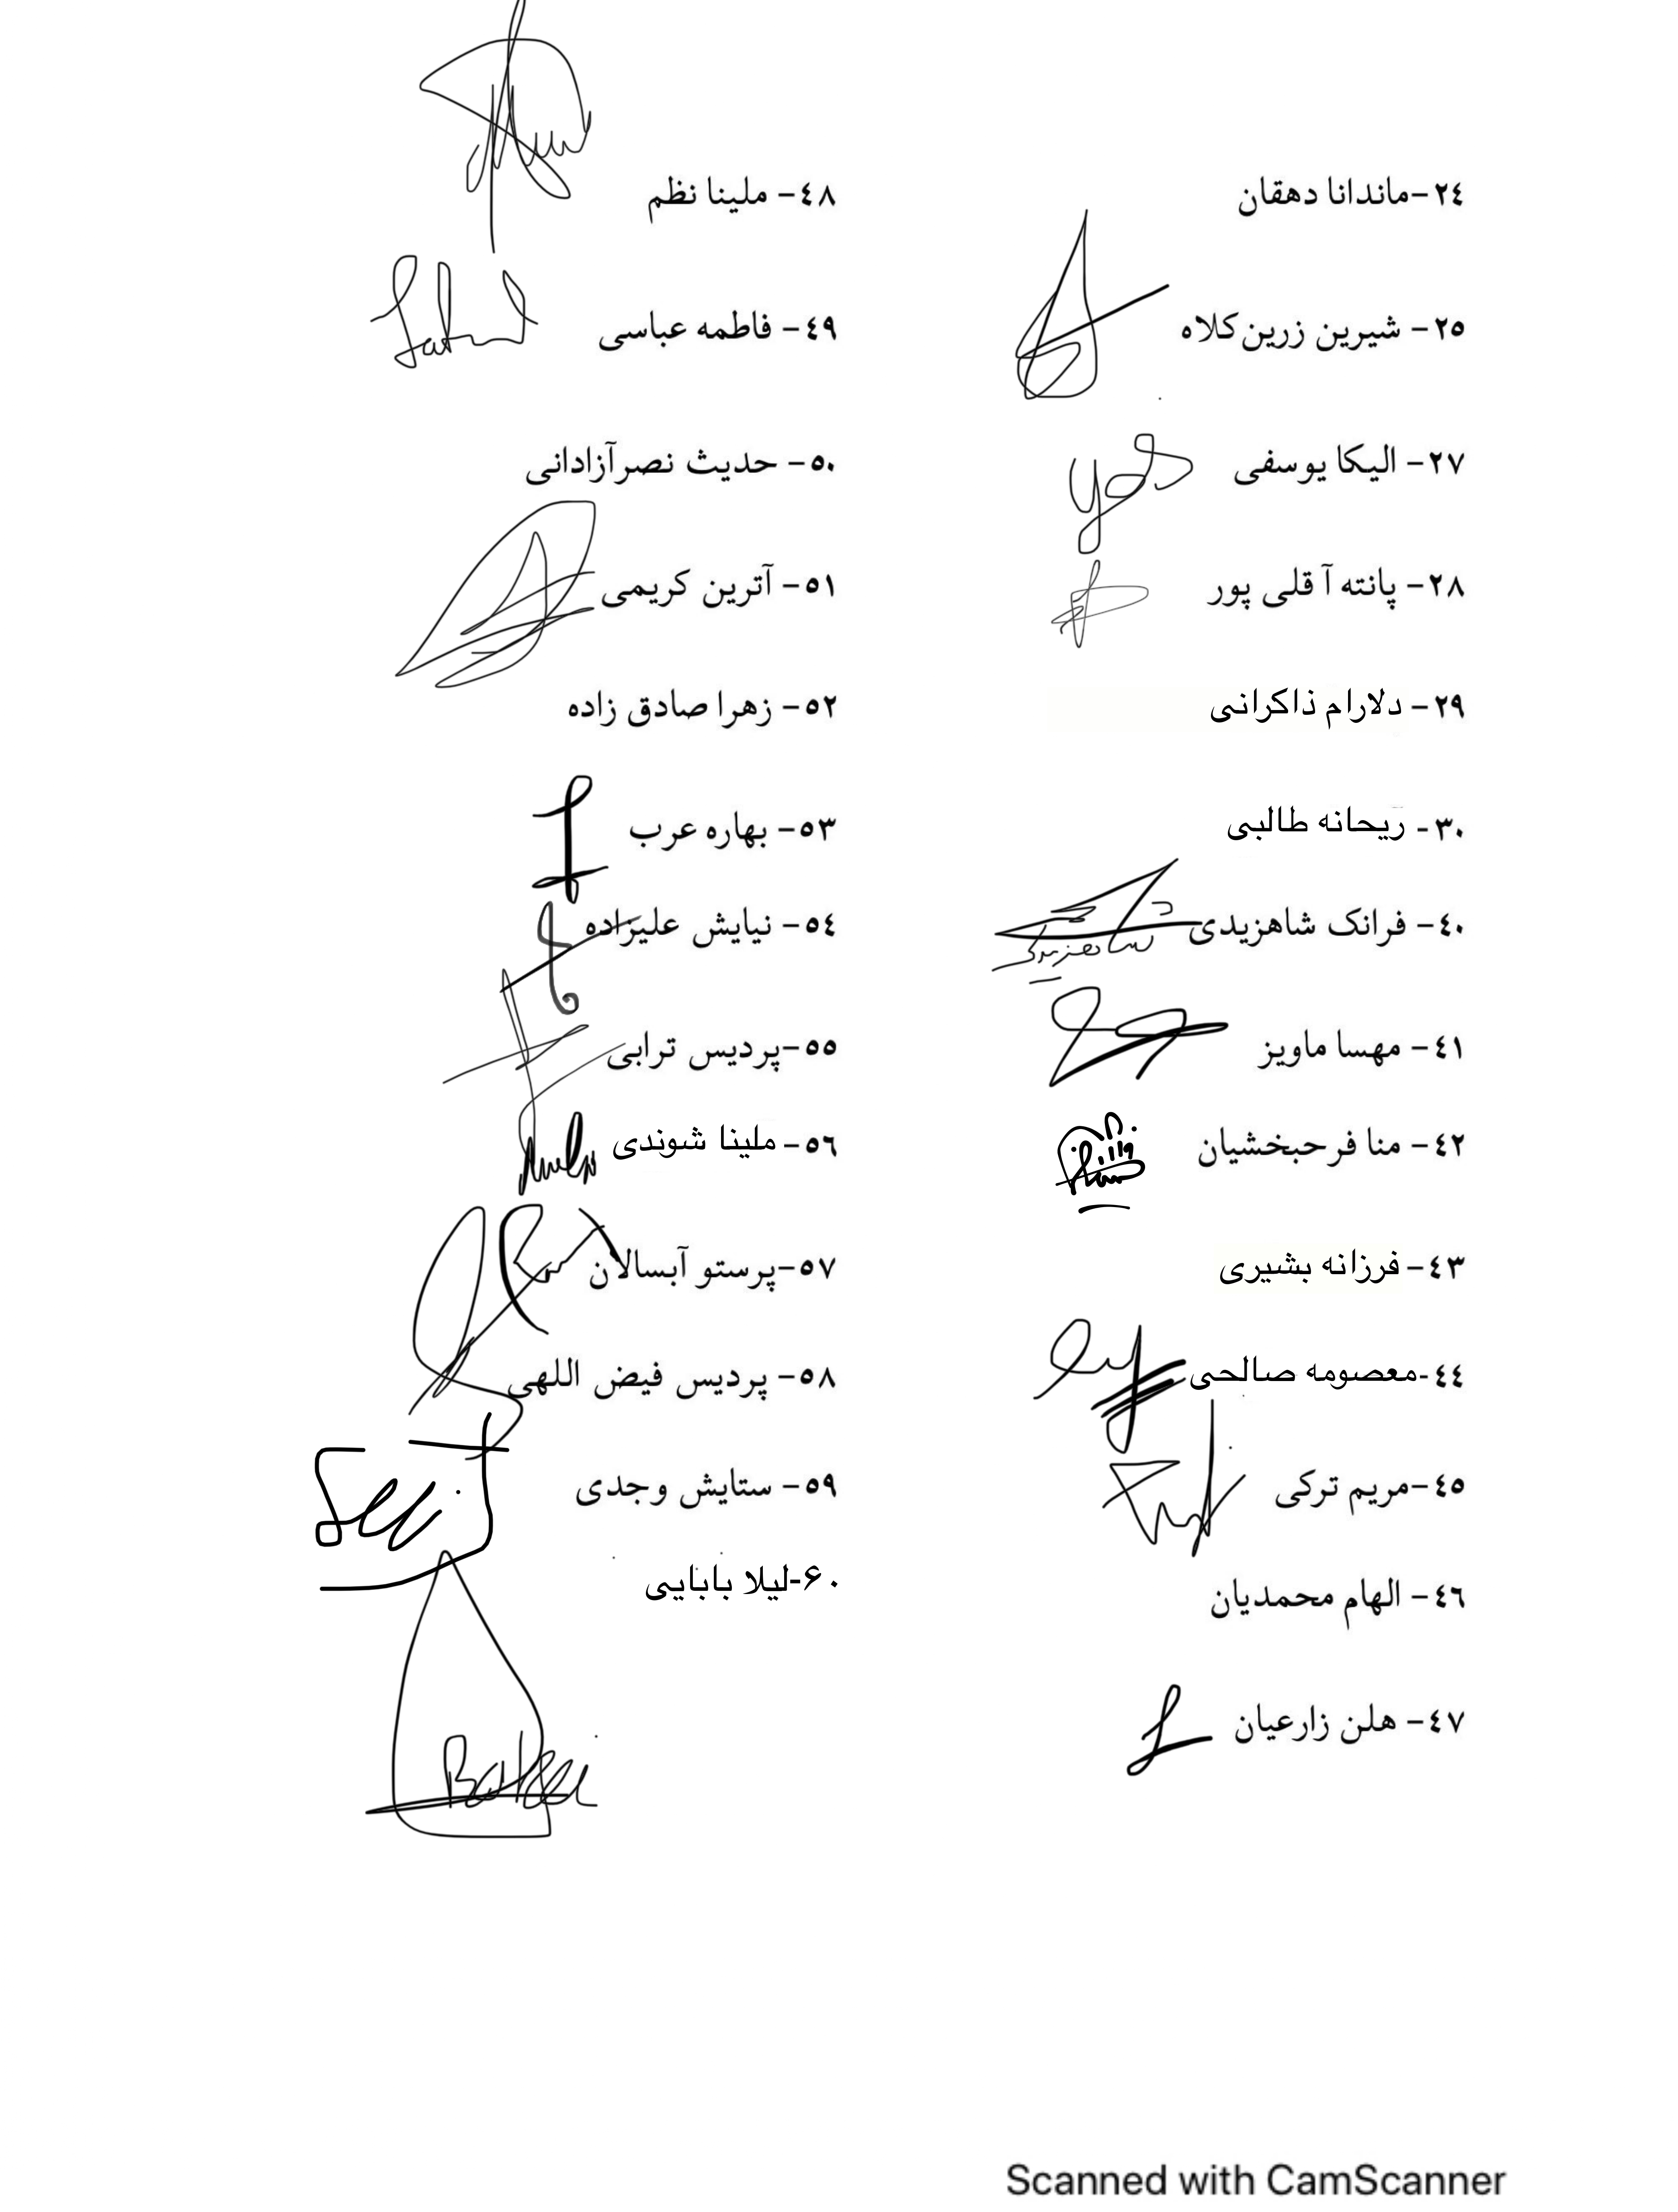 ٢٤-ماندانا دهقان
٢٥- شیرین زرین‌کلاه
٢٧- الیکا یوسفی
٢٨- پانته آ قلی پور
٢٩- دلارام ذاکرانی
٣٠- ریحانه طالبی
٤٠- فرانک شاهزیدی
شاهزیدی
٤١- مهسا ماویز
٤٢- منا فرحبخشیان
٤٣- فرزانه بشیری
٤٤-معصومه صالحی
٤٥-مریم ترکی
٤٦- الهام محمدیان
٤٧- هلن زارعیان
٤٨- ملینا نظم
٤٩- فاطمه عباسی
٥٠- حدیث نصرآزادانی
٥١- آترین کریمی
٥٢- زهرا صادق زاده
٥٣- بهاره عرب
٥٤- نیایش علیزاده
٥٥-پردیس ترابی
٥٦- ملینا شوندی
٥٧-پرستو آبسالان
٥٨- پردیس فیض اللهی
٥٩- ستایش وجدی
۶۰-لیلا بابایی
Scanned with CamScanner